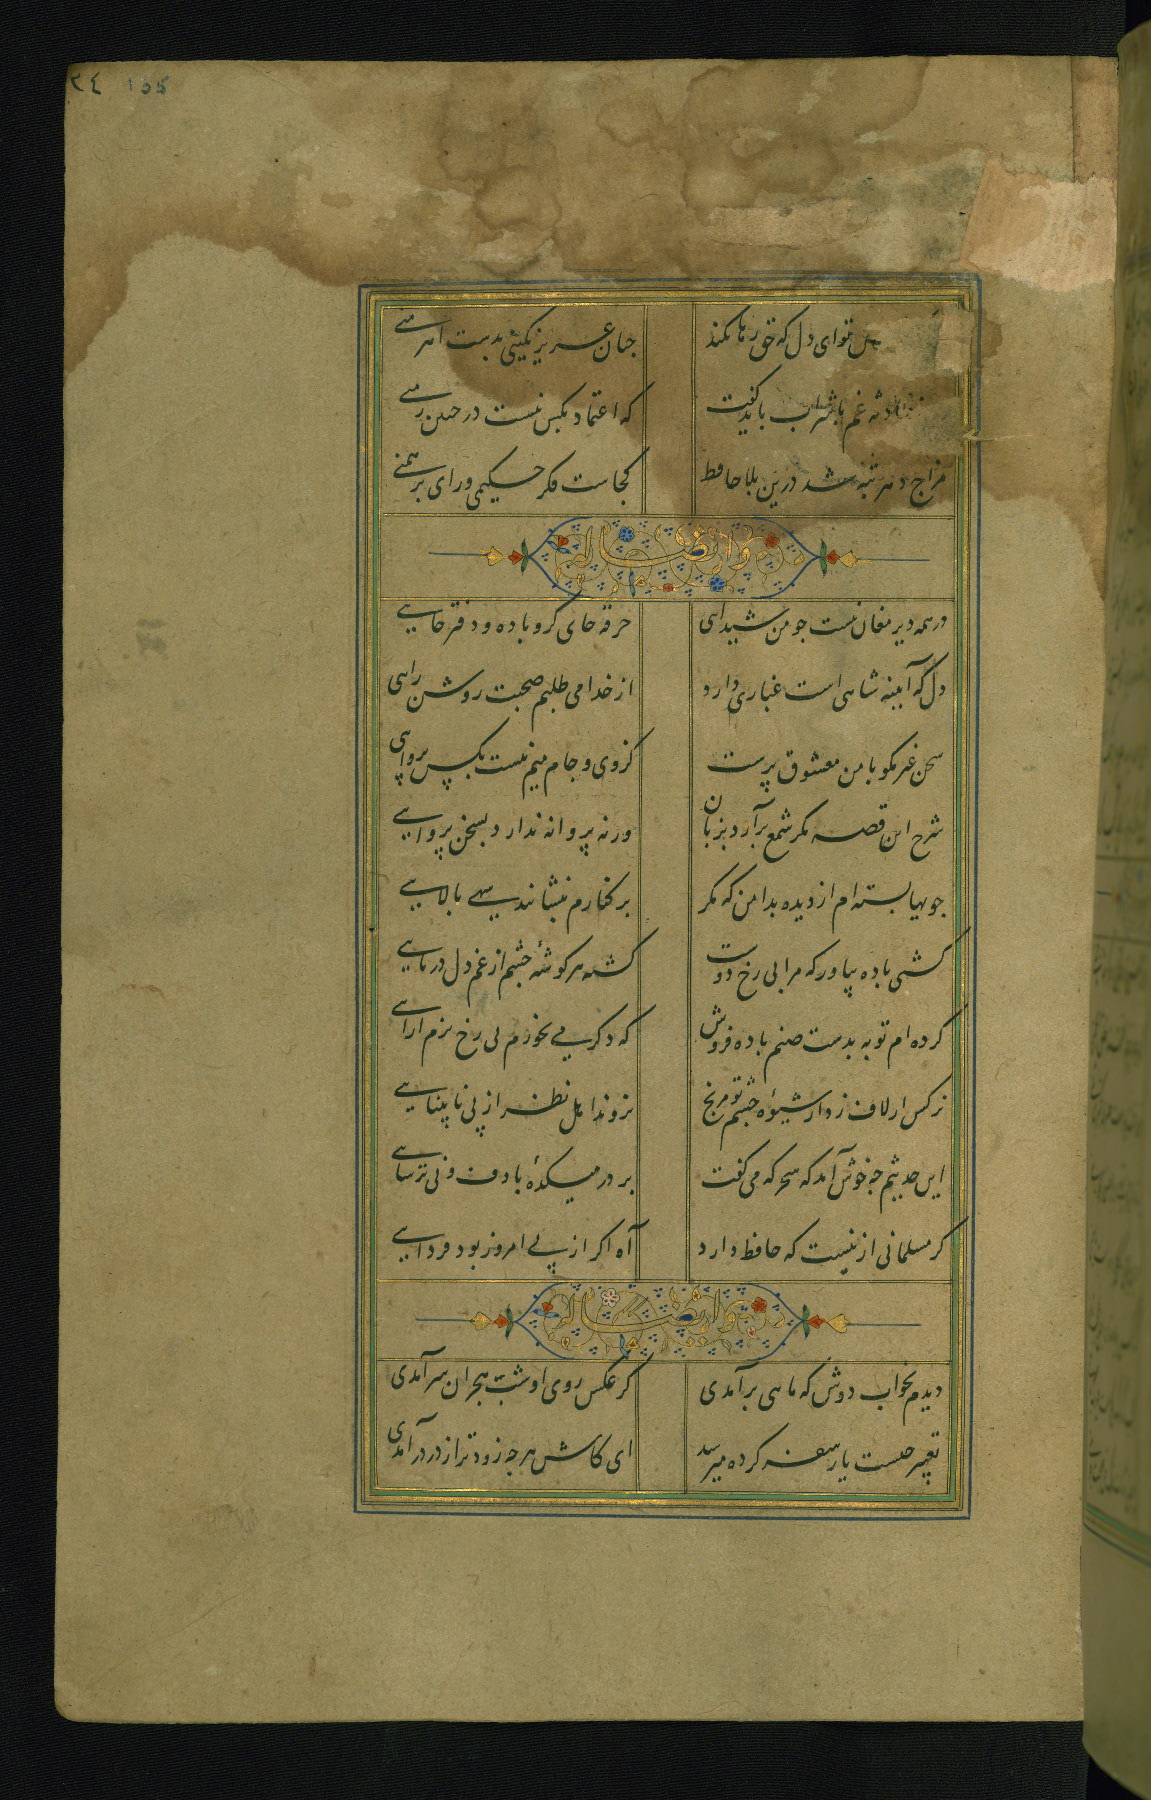 ٢٤ ١٥٥
تو ای دل که حق رها نکند
چنان عزیز نگینی بدست اهرمنی
غم با شراب باید گفت
که اعتماد بکس نیست در چنین زمنی
مزاج دهر تبه شد درین بلا حافظ
کجاست فکر حکیمی و رای برهمنی
و ایضا له
در همه دیر مغان نیست جو من شیدایی
خرقه جای کرو باده و دفتر جایی
دل که آیینه شاهی است غباری دارد
از خدا می طلبم صحبت روشن رایی
سخن غیر مکو با من معشوق پرست
کز وی و جام میم نیست بکس پروایی
شرح این قصه مکر شمع برآرد بزبان
ورنه پروانه ندارد بسخن پروایی
جویها بسته ام از دیده بدامن که مکر
بر کنارم بنشانند سهی بالایی
کشتی باده بیاور که مرا بی رخ دوست
کشته هر کوشهٔ چشم از غم دل دریایی
کرده ام توبه بدست صنم باده فروش
که دکر می نخورم بی رخ بزم ارایی
نرکس ار لاف زد از شیوهٔ چشم تو مرنج
نروند اهل نظر از پی نابینایی
این حدیثم چه خوش آمد که سحرکه می کفت
بر در میکدهٔ با دف و نی ترسایی
کر مسلمانی ازینست که حافظ دارد
آه اکر از پی امروز بود فردایی
و ایضا له
دیدم بخواب دوش که ماهی برآمدی
کز عکس روی او شب هجران سرآمدی
تعبیر چیست یار سفر کرده میرسد
ای کاش هر چه زودتر از در درآمدی